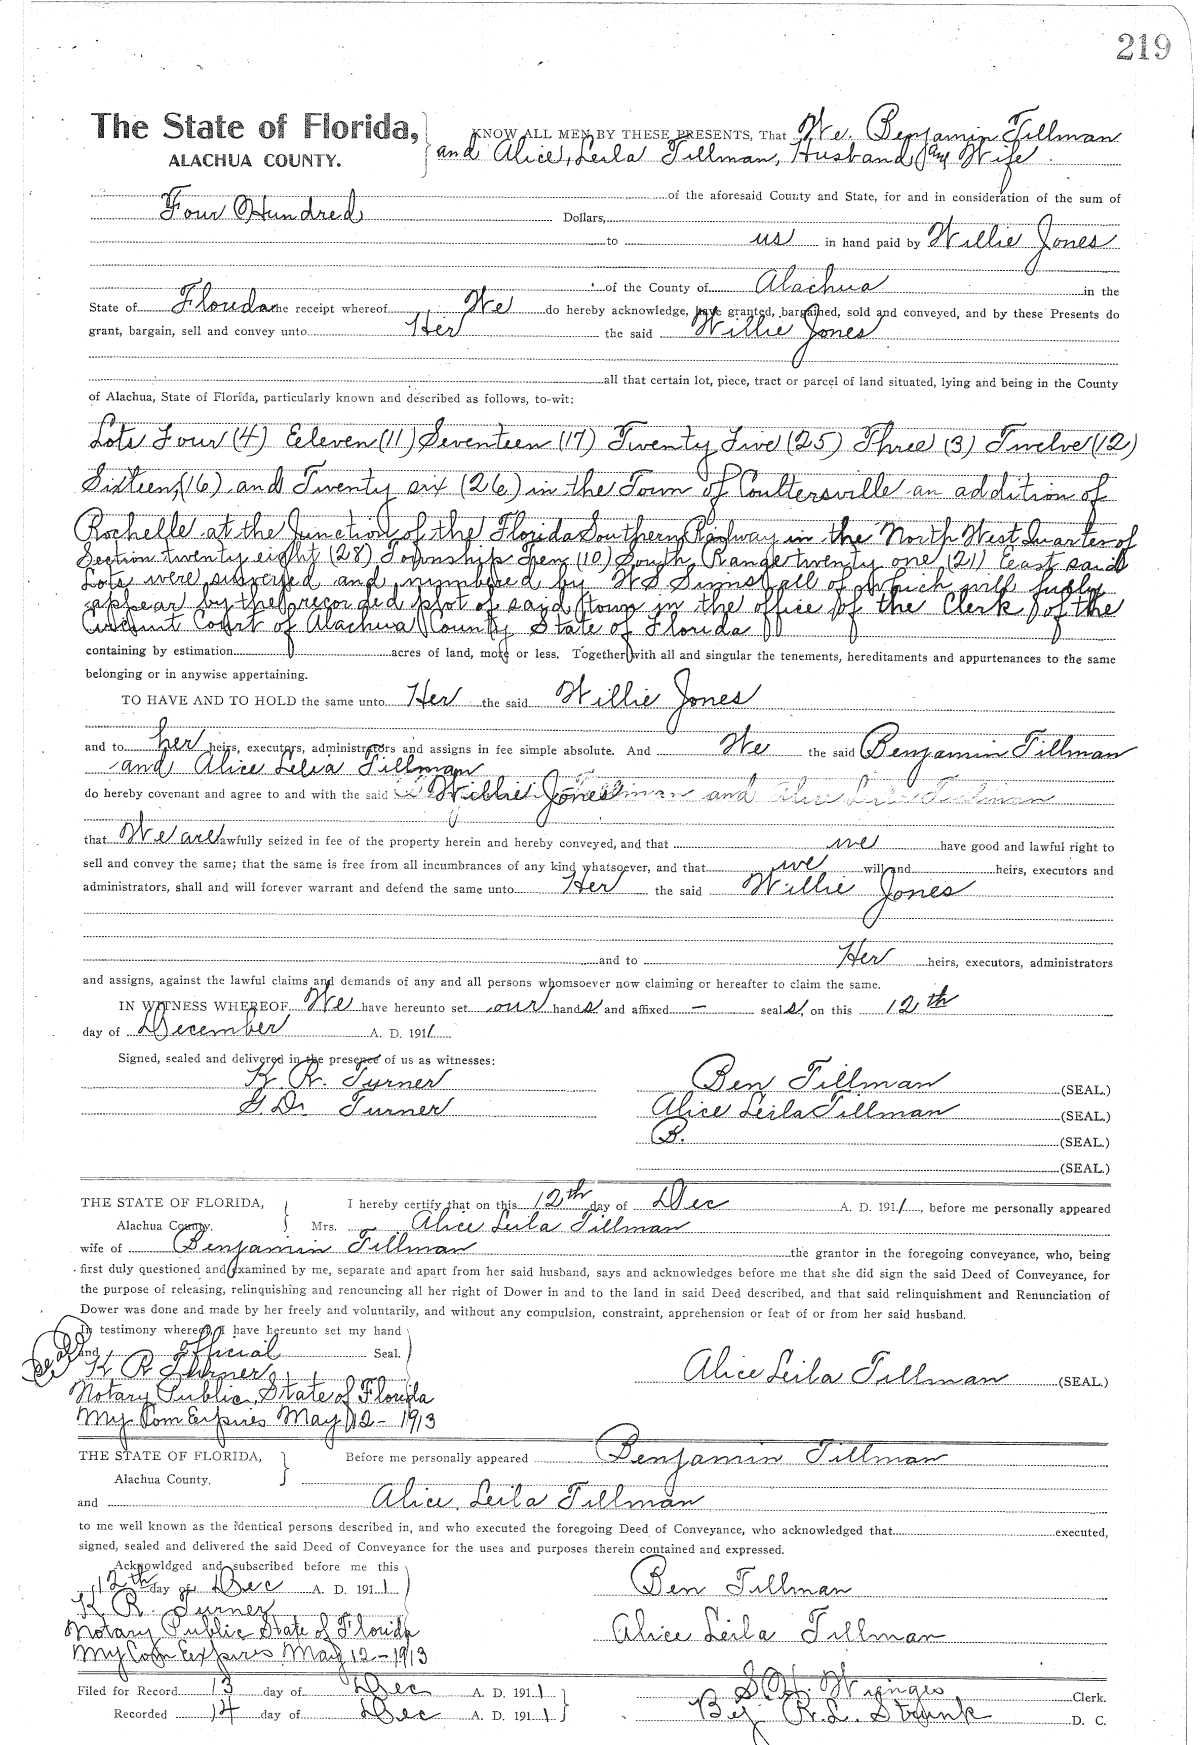 219
The State of Florida,
ALACHUA COUNTY.
KNOW ALL MEN BY THESE PRESENTS, That We. Benjamin Tillman
and Alice, Leila Tillman, Husband and Wife
of the aforesaid County and State, for and in consideration of the sum of
Four Hundred Dollars,
to us in hand paid by Willie Jones
of the County of Alachua in the
State of Florida the receipt whereof We do hereby acknowledge, have granted, bargained, sold and conveyed, and by these Presents do
grant, bargain, sell and convey unto Her the said Willie Jones
all that certain lot, piece, tract or parcel of land situated, lying and being in the County
of Alachua, State of Florida, particularly known and described as follows, to-wit:
Lots Four (4) Eeleven (11) Seventeen (17) Twenty Five (25) Three (3) Twelve (12)
Sixteen, (16) and Twenty six (26) in the Town of Coultersville an addition of
Rochelle at the Junction of the Florida Southern Railway in the North West Quarter of
Section twenty eight (28) Township Ten (10) South Range twenty one (21) East said
Lots were surveyed and numbered by W S Sims all of which will fully
appear by the recorded plot of said town in the office of the Clerk of the
Circuit Court of Alachua County State of Florida
containing by estimation acres of land, more or less. Together with all and singular the tenements, hereditaments and appurtenances to the same
belonging or in anywise appertaining.
TO HAVE AND TO HOLD the same unto Her the said Willie Jones
and to her heirs, executors, administrators and assigns in fee simple absolute. And We the said Benjamin Tillman
and Alice Leila Tillman
do hereby covenant and agree to and with the said Willie Jones Tillman and Alice Leila Tillman
that We are lawfully seized in fee of the property herein and hereby conveyed, and that we have good and lawful right to
sell and convey the same; that the same is free from all incumbrances of any kind whatsoever, and that we will and heirs, executors and
administrators, shall and will forever warrant and defend the same unto Her the said Willie Jones
and to Her heirs, executors, administrators
and assigns, against the lawful claims and demands of any and all persons whomsoever now claiming or hereafter to claim the same.
IN WITNESS WHEREOF We have hereunto set our hands and affixed – seals on this 12th
day of December A. D. 1911
Signed, sealed and delivered in the presence of us as witnesses:
K R. Turner Ben Tillman (SEAL.)
Turner Alice Leila Tillman (SEAL.)
B. (SEAL.)
(SEAL.)
THE STATE OF FLORIDA, I hereby certify that on this 12th day of Dec A. D. 1911, before me personally appeared
Alachua County. Mrs. Alice Leila Tillman
wife of Benjamin Tillman the grantor in the foregoing conveyance, who, being
first duly questioned and examined by me, separate and apart from her said husband, says and acknowledges before me that she did sign the said Deed of Conveyance, for
the purpose of releasing, relinquishing and renouncing all her right of Dower in and to the land in said Deed described, and that said relinquishment and Renunciation of
Dower was done and made by her freely and voluntarily, and without any compulsion, constraint, apprehension or fear of or from her said husband.
In testimony whereof, I have hereunto set my hand
Seal and official Seal.
K R Turner Alice Leila Tillman (SEAL.)
Notary Public, State of Florida
My Com Expires May 12 - 1913
THE STATE OF FLORIDA, Before me personally appeared Benjamin Tillman
Alachua County.
and Alice, Leila Tillman
to me well known as the identical persons described in, and who executed the foregoing Deed of Conveyance, who acknowledged that executed,
signed, sealed and delivered the said Deed of Conveyance for the uses and purposes therein contained and expressed.
Acknowldged and subscribed before me this
12th day of Dec A. D. 1911 Ben Tillman
K R. Turner
Notary Public State of Florida Alice Leila Tillman
My Com Expires May 12 - 1913
Filed for Record 13 day of Dec A. D. 1911 S. H. Wienges Clerk.
Recorded 14 day of Dec A. D. 1911 By R. L. Strunk D. C.